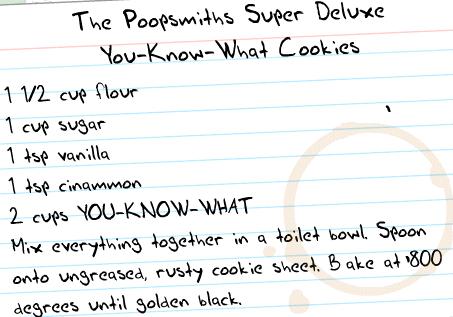 The Poopsmiths Super Deluxe
You-Know-What Cookies
1 1/2 cup flour
1 cup sugar
1 tsp vanilla
1 tsp cinammon
2 cups YOU-KNOW-WHAT
Mix everything together in a toilet bowl. Spoon
onto ungreased, rusty cookie sheet. Bake at 1800
degrees until golden black.